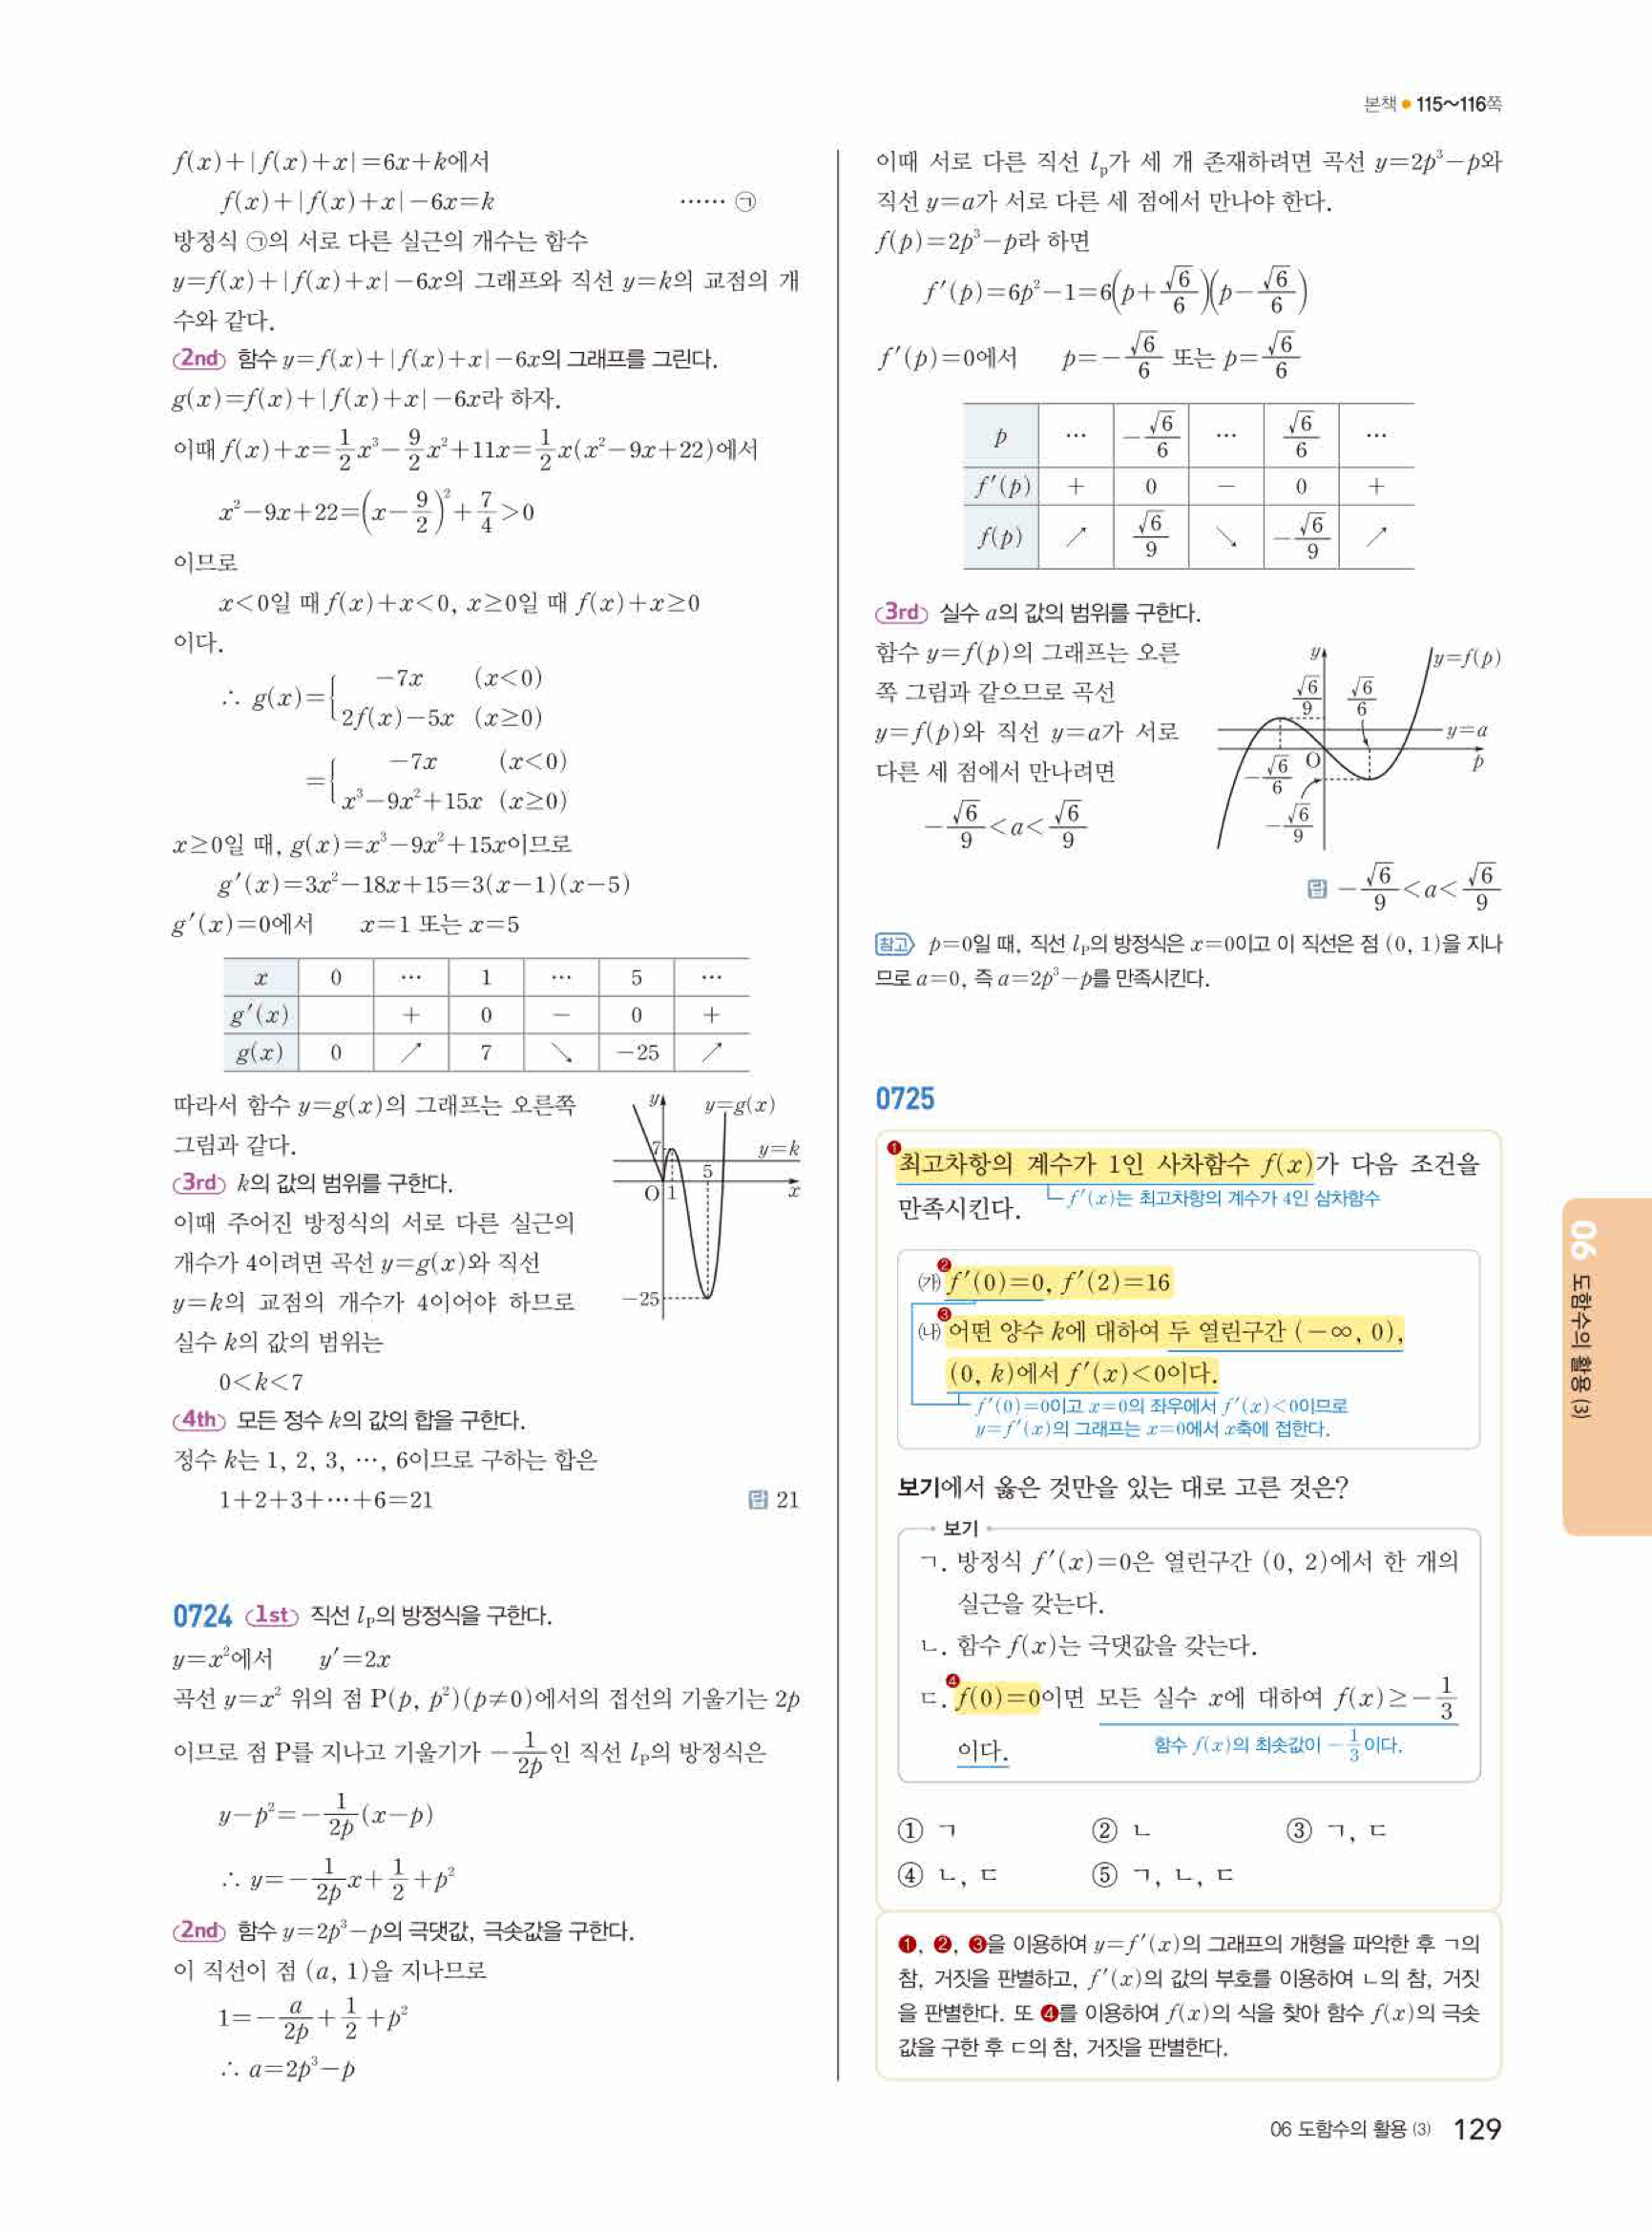 본책 ● 115~116쪽
f(x)+|f(x)+x|=6x+k에서
f(x)+|f(x)+x|-6x=k ...... ㉠
방정식 ㉠의 서로 다른 실근의 개수는 함수
y=f(x)+|f(x)+x|-6x의 그래프와 직선 y=k의 교점의 개
수와 같다.
2nd 함수 y=f(x)+|f(x)+x|-6x의 그래프를 그린다.
g(x)=f(x)+|f(x)+x|-6x라 하자.
이때 f(x)+x=1/2x³-9/2x²+11x=1/2x(x²-9x+22)에서
x²-9x+22=(x-9/2)²+7/4>0
이므로
x<0일 때 f(x)+x<0, x≥0일 때 f(x)+x≥0
이다.
∴ g(x)={ -7x (x<0)
2f(x)-5x (x≥0)
={ -7x (x<0)
x³-9x²+15x (x≥0)
x≥0일 때, g(x)=x³-9x²+15x이므로
g'(x)=3x²-18x+15=3(x-1)(x-5)
g'(x)=0에서 x=1 또는 x=5
x 0 ... 1 ... 5 ...
g'(x) + 0 - 0 +
g(x) 0 ↗ 7 ↘ -25 ↗
따라서 함수 y=g(x)의 그래프는 오른쪽
그림과 같다.
3rd k의 값의 범위를 구한다.
이때 주어진 방정식의 서로 다른 실근의
개수가 4이려면 곡선 y=g(x)와 직선
y=k의 교점의 개수가 4이어야 하므로
실수 k의 값의 범위는
0<k<7
y y=g(x)
7 y=k
5
O 1 x
-25
4th 모든 정수 k의 값의 합을 구한다.
정수 k는 1, 2, 3, ..., 6이므로 구하는 합은
1+2+3+...+6=21 답 21
0724 1st 직선 lₚ의 방정식을 구한다.
y=x²에서 y'=2x
곡선 y=x² 위의 점 P(p, p²)(p≠0)에서의 접선의 기울기는 2p
이므로 점 P를 지나고 기울기가 -1/2p인 직선 lₚ의 방정식은
y-p²=-1/2p(x-p)
∴ y=-1/2p x+1/2+p²
2nd 함수 y=2p³-p의 극댓값, 극솟값을 구한다.
이 직선이 점 (a, 1)을 지나므로
1=-a/2p+1/2+p²
∴ a=2p³-p
이때 서로 다른 직선 lₚ가 세 개 존재하려면 곡선 y=2p³-p와
직선 y=a가 서로 다른 세 점에서 만나야 한다.
f(p)=2p³-p라 하면
f'(p)=6p²-1=6(p+√6/6)(p-√6/6)
f'(p)=0에서 p=-√6/6 또는 p=√6/6
p ... -√6/6 ... √6/6 ...
f'(p) + 0 - 0 +
f(p) ↗ √6/9 ↘ -√6/9 ↗
3rd 실수 a의 값의 범위를 구한다.
함수 y=f(p)의 그래프는 오른
쪽 그림과 같으므로 곡선
y=f(p)와 직선 y=a가 서로
다른 세 점에서 만나려면
-√6/9<a<√6/9
y y=f(p)
√6/9 √6/6
y=a
-√6/6 O p
-√6/9
답 -√6/9<a<√6/9
참고 p=0일 때, 직선 lₚ의 방정식은 x=0이고 이 직선은 점 (0, 1)을 지나
므로 a=0, 즉 a=2p³-p를 만족시킨다.
0725
❶최고차항의 계수가 1인 사차함수 f(x)가 다음 조건을
만족시킨다. f'(x)는 최고차항의 계수가 4인 삼차함수
㈎ ❷f'(0)=0, f'(2)=16
㈏ ❸어떤 양수 k에 대하여 두 열린구간 (-∞, 0),
(0, k)에서 f'(x)<0이다.
f'(0)=0이고 x=0의 좌우에서 f'(x)<0이므로
y=f'(x)의 그래프는 x=0에서 x축에 접한다.
보기에서 옳은 것만을 있는 대로 고른 것은?
보기
ㄱ. 방정식 f'(x)=0은 열린구간 (0, 2)에서 한 개의
실근을 갖는다.
ㄴ. 함수 f(x)는 극댓값을 갖는다.
ㄷ. ❹f(0)=0이면 모든 실수 x에 대하여 f(x)≥-1/3
이다. 함수 f(x)의 최솟값이 -1/3이다.
① ㄱ ② ㄴ ③ ㄱ, ㄷ
④ ㄴ, ㄷ ⑤ ㄱ, ㄴ, ㄷ
❶, ❷, ❸을 이용하여 y=f'(x)의 그래프의 개형을 파악한 후 ㄱ의
참, 거짓을 판별하고, f'(x)의 값의 부호를 이용하여 ㄴ의 참, 거짓
을 판별한다. 또 ❹를 이용하여 f(x)의 식을 찾아 함수 f(x)의 극솟
값을 구한 후 ㄷ의 참, 거짓을 판별한다.
06 도함수의 활용 (3)
06 도함수의 활용 (3) 129